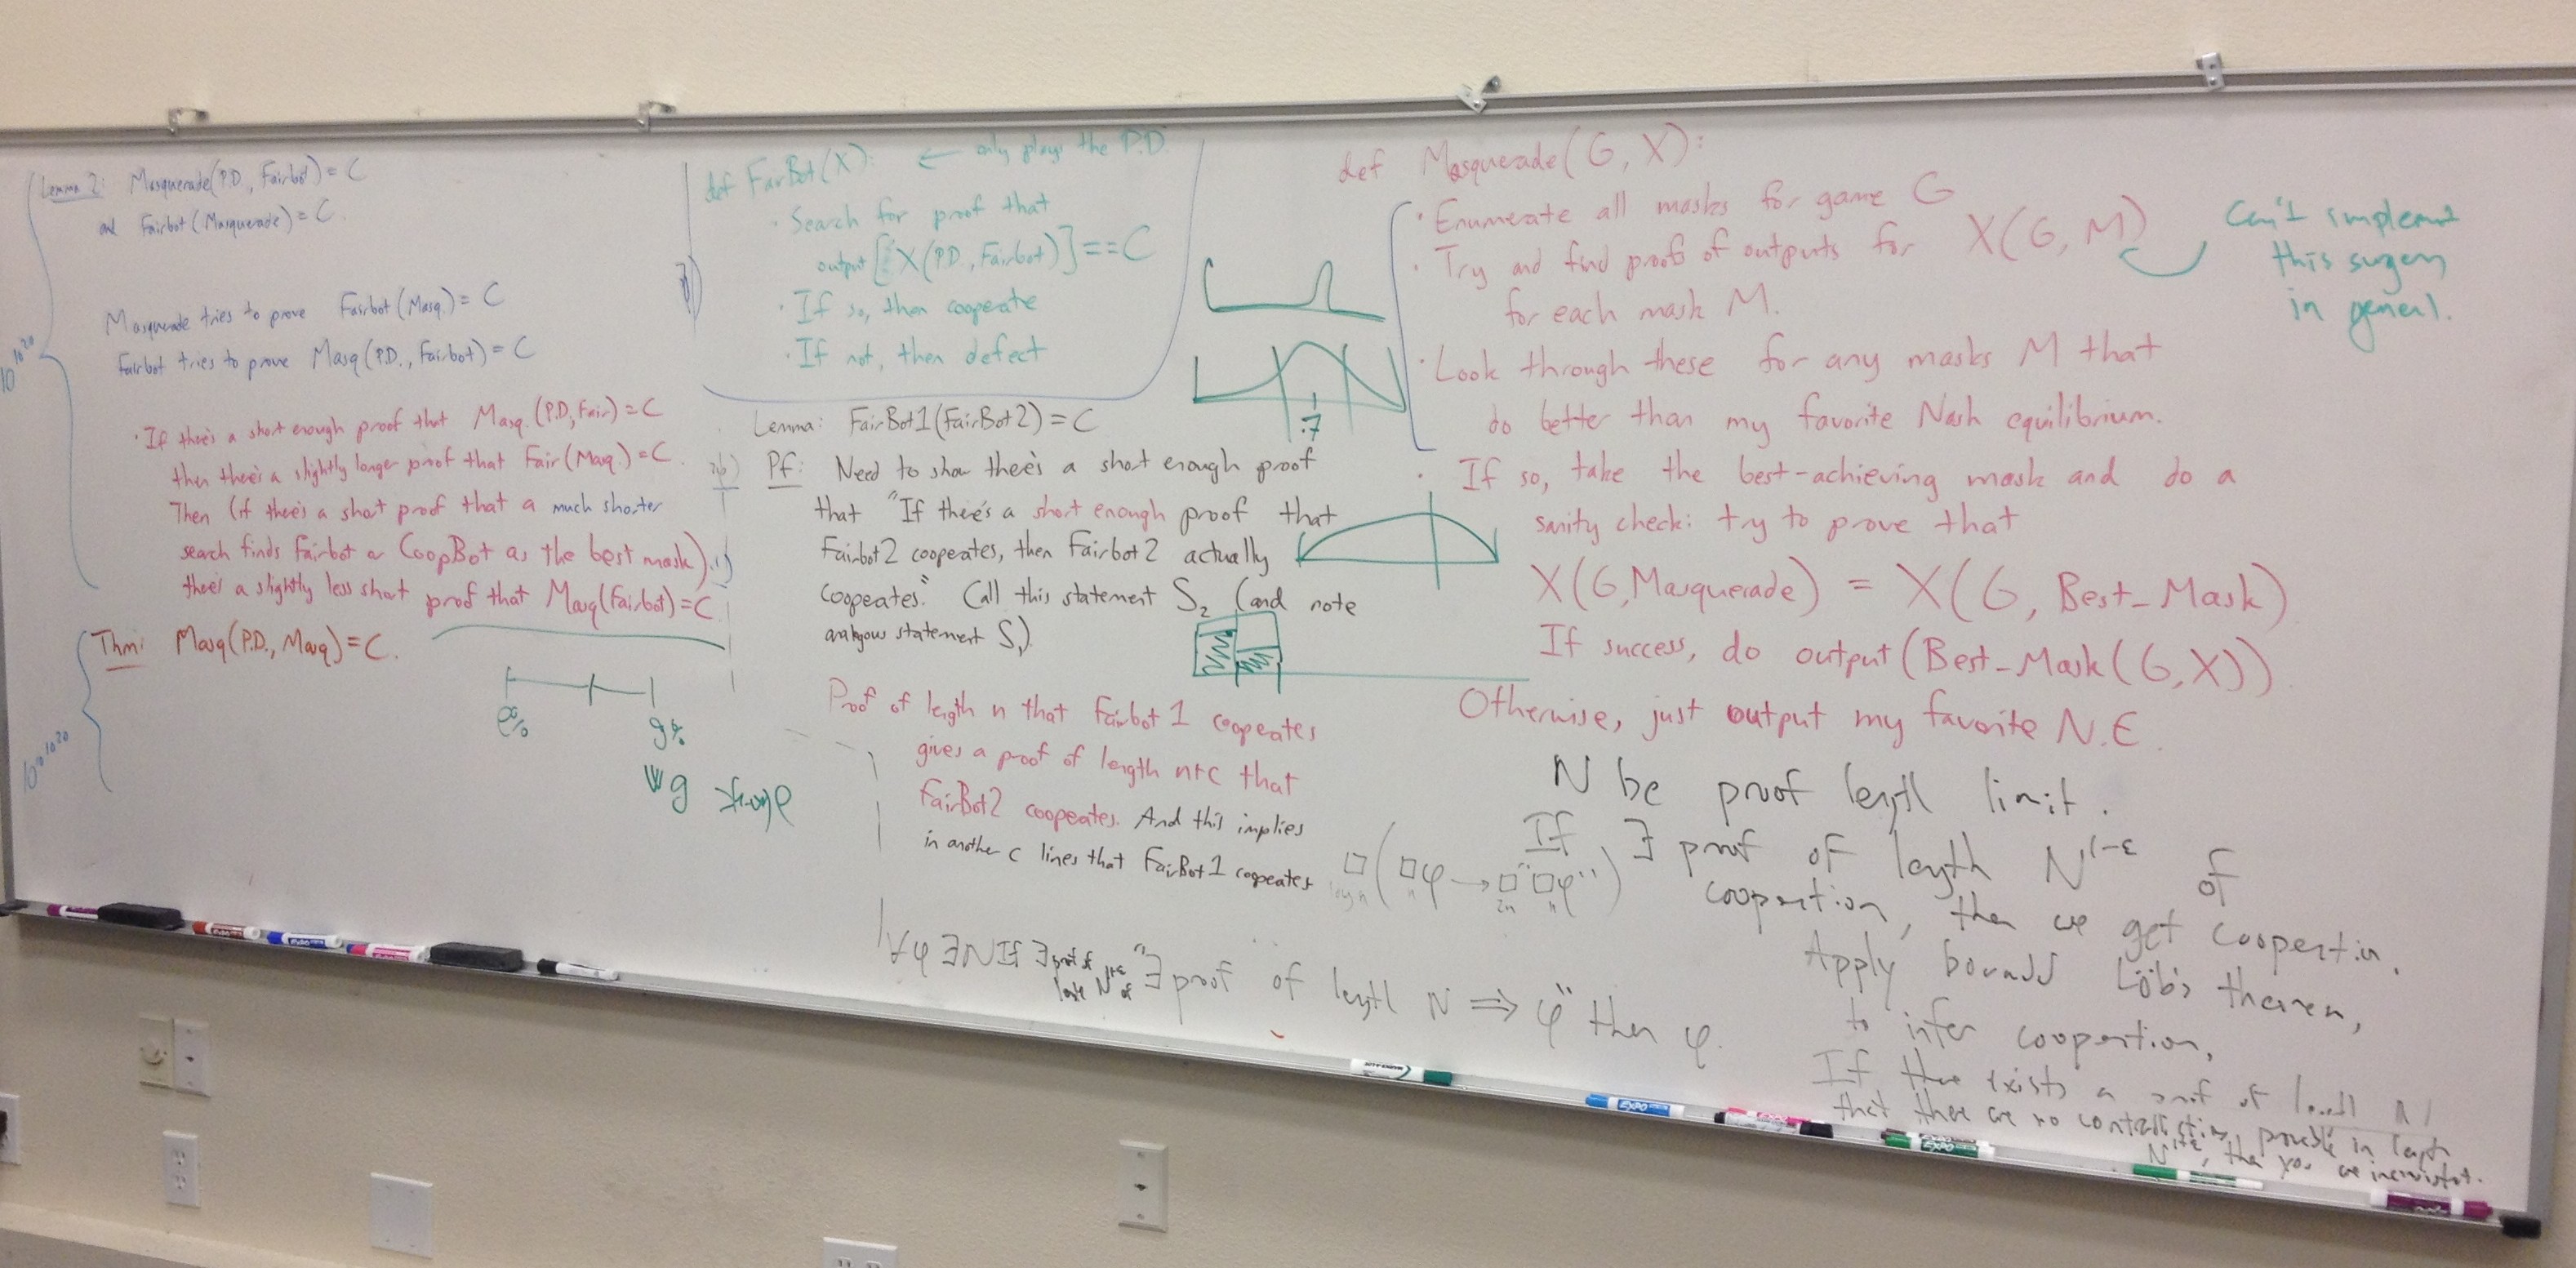 Lemma 2: Masquerade(P.D., Fairbot) = C
and Fairbot(Masquerade) = C.
Masquerade tries to prove Fairbot(Masq.) = C
Fairbot tries to prove Masq(P.D., Fairbot) = C
10^10^20
· If there's a short enough proof that Masq.(P.D., Fair) = C
then there's a slightly longer proof that Fair(Masq.) = C.
Then (if there's a short proof that a much shorter
search finds fairbot or CoopBot as the best mask)
there's a slightly less short proof that Masq(Fairbot) = C
Thm: Masq(P.D., Masq) = C.
def FairBot(X): ← only plays the P.D.
· Search for proof that
output["X(P.D., Fairbot)"] == C
· If so, then cooperate
· If not, then defect
Lemma: FairBot1(FairBot2) = C
Pf: Need to show there's a short enough proof
that "If there's a short enough proof that
Fairbot2 cooperates, then Fairbot2 actually
cooperates." Call this statement S₂ (and note
analogous statement S₁).
Proof of length n that Fairbot1 cooperates
gives a proof of length n+c that
FairBot2 cooperates. And this implies
in another c lines that FairBot1 cooperates
.7
def Masquerade(G, X):
· Enumerate all masks for game G
· Try and find proofs of outputs for X(G, M)
for each mask M.
· Look through these for any masks M that
do better than my favorite Nash equilibrium.
· If so, take the best-achieving mask and do a
sanity check: try to prove that
X(G, Masquerade) = X(G, Best-Mask)
If success, do output(Best-Mask(G, X))
Otherwise, just output my favorite N.E.
Can't implement
this surgery
in general.
N be proof length limit.
If ∃ proof of length N^1-ε of
cooperation, then we get cooperation.
Apply bounded Löb's theorem,
to infer cooperation.
If there exists a proof of length N
that there are no contradictions provable in length
N^1+ε, then you are inconsistent.
□(□φ → □"□φ")
∀φ ∃N If ∃ proof of length N^1+ε of "∃ proof of length N ⇒ φ" then φ.